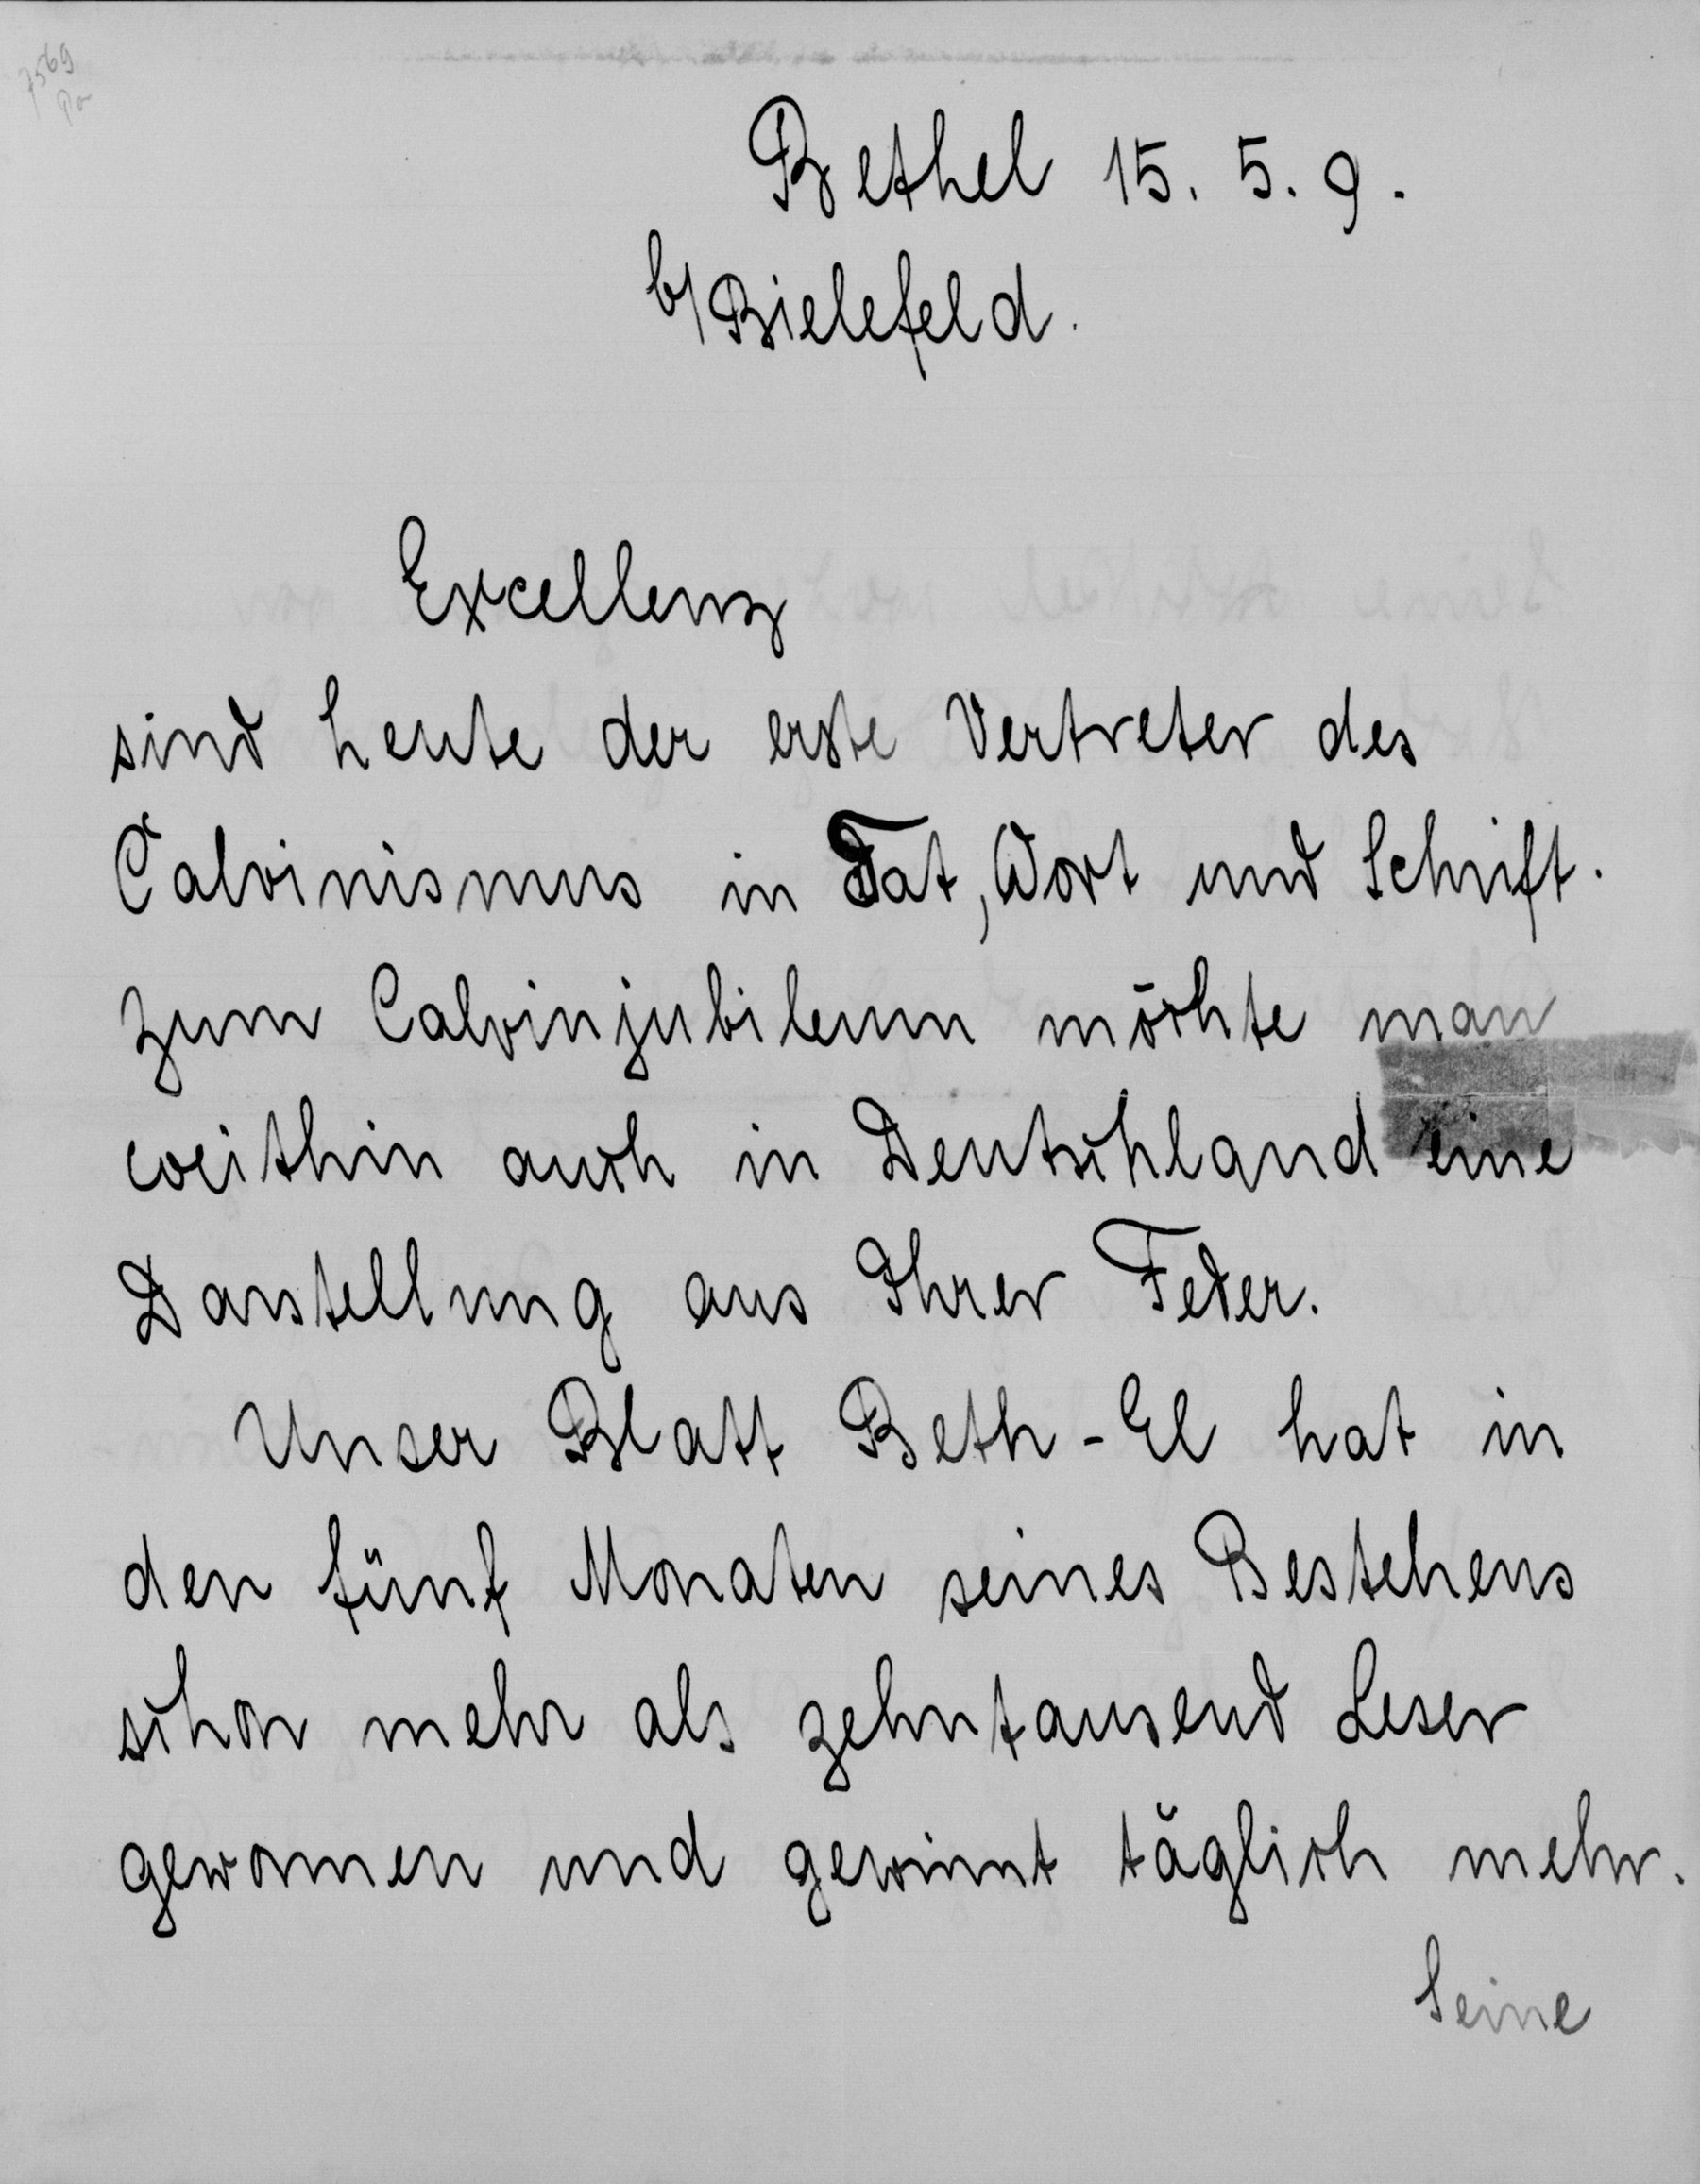 7569
Bethel 15. 5. 9.
b/Bielefeld.
Excellenz
sind heute der erste Vertreter des
Calvinismus in Tat, Wort und Schrift.
Zum Calvinjubileum möchte man
weithin auch in Deutschland eine
Darstellung aus Ihrer Feder.
Unser Blatt Beth-El hat in
den fünf Monaten seines Bestehens
schon mehr als zehntausend Leser
gewonnen und gewinnt täglich mehr.
Seine